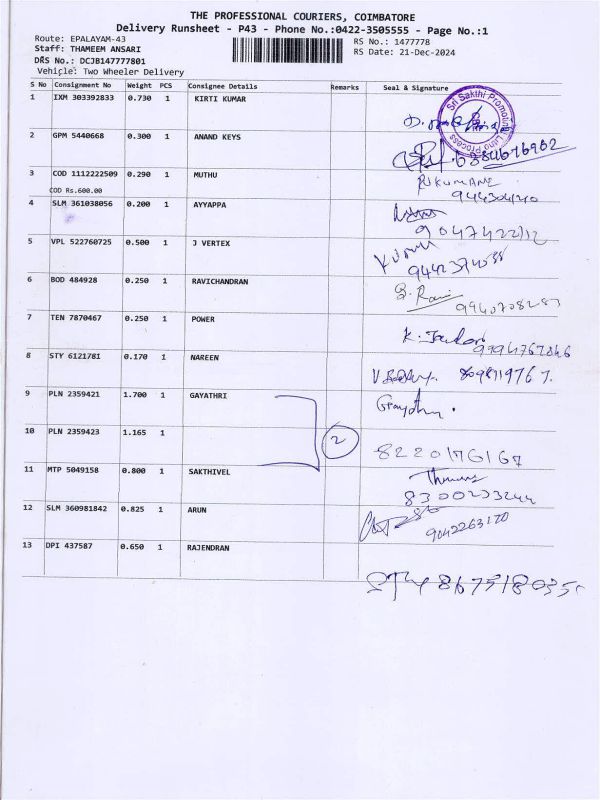 THE PROFESSIONAL COURIERS, COIMBATORE
Delivery Runsheet - P43 - Phone No.:0422-3505555 - Page No.:1
Route: EPALAYAM-43
RS No.: 1477778
Staff: THAMEEM ANSARI
RS Date: 21-Dec-2024
DRS No.: DCJB147777801
Vehicle: Two Wheeler Delivery
S No Consignment No Weight PCS Consignee Details Remarks Seal & Signature
1 IXM 303392833 0.730 1 KIRTI KUMAR
Sri Sakthi Promotional Litho Process
2 GPM 5440668 0.300 1 ANAND KEYS
6384676962
3 COD 1112222509 0.290 1 MUTHU
COD Rs.600.00
4 SLM 361038056 0.200 1 AYYAPPA
5 VPL 522760725 0.500 1 J VERTEX
6 BOD 484928 0.250 1 RAVICHANDRAN
S. Ravi
7 TEN 7870467 0.250 1 POWER
8 STY 6121781 0.170 1 NAREEN
9 PLN 2359421 1.700 1 GAYATHRI
Gayathri.
10 PLN 2359423 1.165 1
2
8220176167
11 MTP 5049158 0.800 1 SAKTHIVEL
8300233244
12 SLM 360981842 0.825 1 ARUN
13 DPI 437587 0.650 1 RAJENDRAN